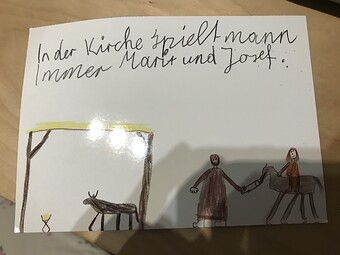 In der Kirche spielt mann
Immer Maria und Josef.